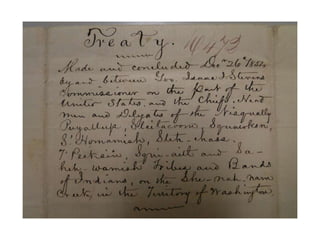 Treaty. 10473
Made and concluded Decr 26th 1854
by and between Gov. Isaac I. Stevens
Commissioner on the part of the
United States, and the Chiefs, Head
men and Delgates of the Nisqually
Puyallup, Steilacoom, Squawksin,
S'Homamish, Steh-chass.
T'Peeksin, Squi-aitl and Sa-
heh-wamish tribes and Bands
of Indians, on the She-nah-nam
Creek, in the Territory of Washington.